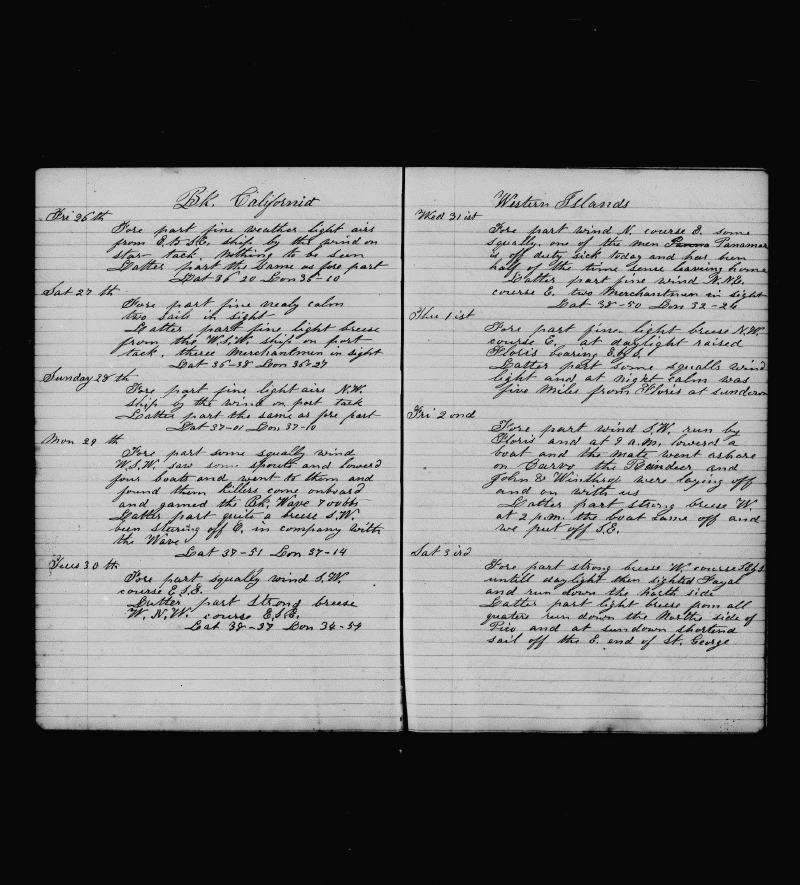 Bk. California
Fri 26th
Fore part fine weather light airs
from E.b.S.E. ship by the wind on
star- tack. Nothing to be seen
Latter part the same as fore part
Lat 36-20 Lon 36-10
Sat 27th
Fore part fine nealy calm
two sails in sight
Latter part fine light breese
from the W.S.W. ship on port
tack. theree Merchantmen in sight
Lat 36-38 Lon 36-27
Sunday 28th
Fore part fine light airs N.W.
ship by the wind on port tack
Latter part the same as fore part
Lat 37-01 Lon 37-10
Mon 29th
Fore part some squally wind
W.S.W. saw some spouts and lowerd
four boats and went to them and
found them killers come onboard
and gamed the Bk. Wave 700bbs
Latter part quite a breese S.W.
ben stering off E. in company with
the Wave
Lat 37-51 Lon 37-14
Tues 30th
Fore part squally wind S.W.
course E.S.E.
Latter part strong breese
W.N.W. course E.S.E.
Lat 38-37 Lon 34-54
Western Islands
Wed 31ist
Fore part wind N. course E. some
squally. one of the men Panama
is off duty sick today and has ben
half of the time sense leaving home
Latter part fine wind N.N.E.
course E. two Merchantmen in sight
Lat 38-50 Lon 32-26
Thu 1ist
Fore part fine light breese N.W.
course E. at daylight raised
Floris bearing E.b.S.
Latter part some squalls wind
light and at night calm was
five miles from Floris at sundown
Fri 2ond
Fore part wind S.W. run by
Floris and at 9 a.m. lowered a
boat and the mate went ashore
on Carvo the Raindeer and
John & Winthrop were laying off
and on with us
Latter part strong breese W.
at 2 p.m. the boat came off and
we put off S.E.
Sat 3ird
Fore part strong breese W. course
untill daylight then sighted Fayal
and run down the north side
Latter part light breese from all
quaters run down the Northe side of
Pico and at sundown shortend
sail off the E. end of St. George